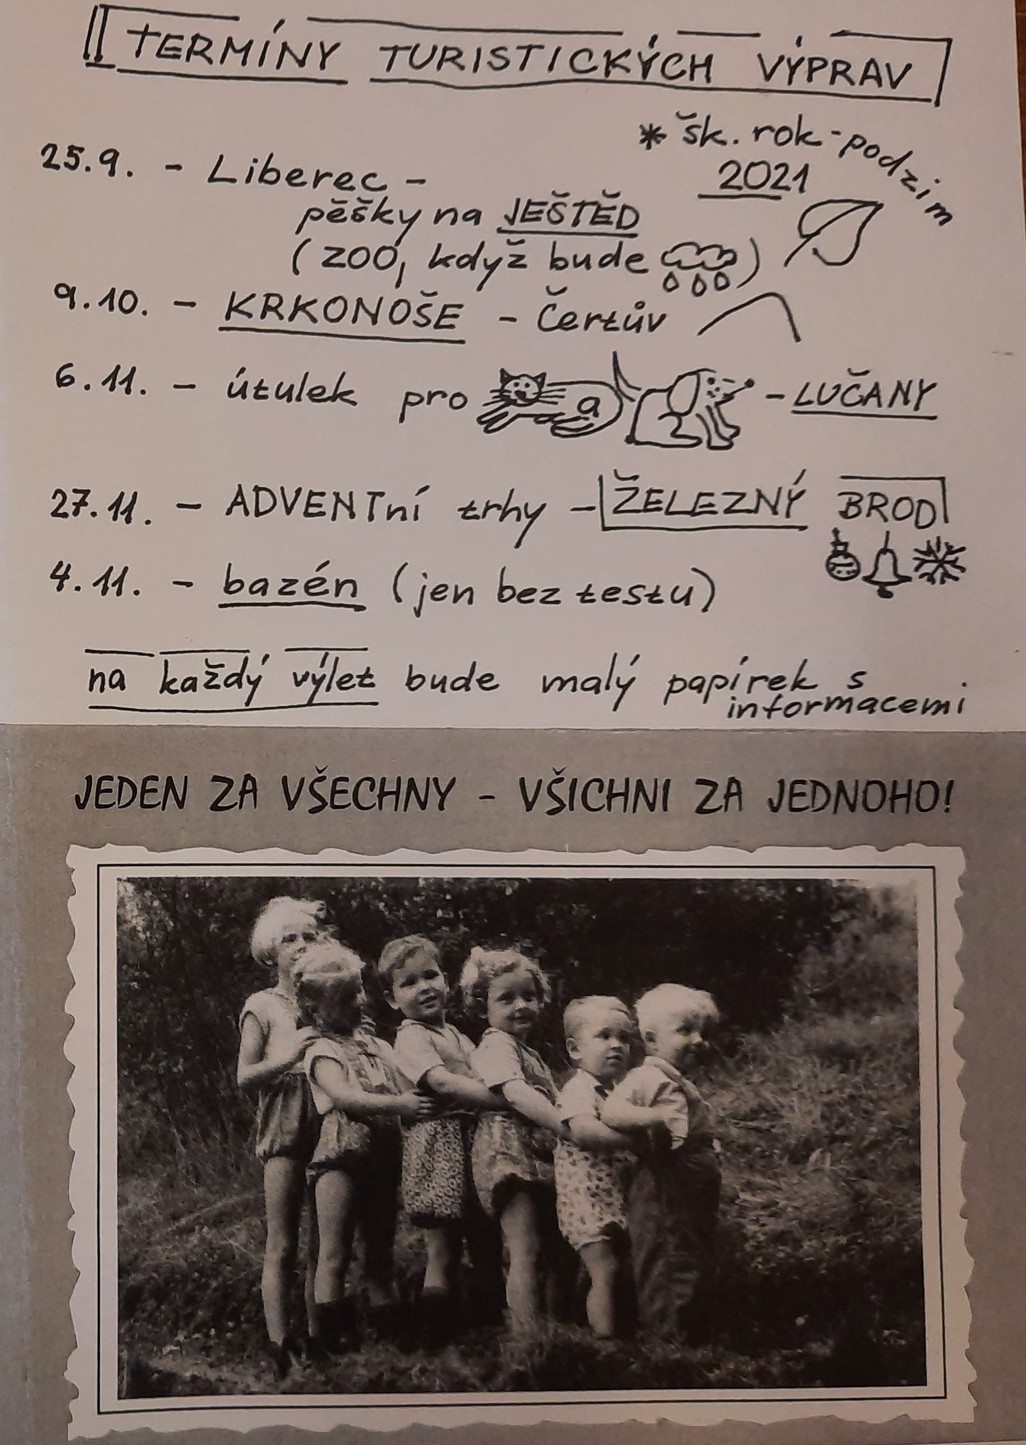 TERMÍNY TURISTICKÝCH VÝPRAV
* šk. rok - podzim
2021
25.9. - Liberec -
pěšky na JEŠTĚD
(ZOO, když bude )
9.10. - KRKONOŠE - Čertův
6.11. - útulek pro a - LUČANY
27.11. - ADVENTní trhy - ŽELEZNÝ BROD
4.11. - bazén (jen bez testu)
na každý výlet bude malý papírek s
informacemi
JEDEN ZA VŠECHNY - VŠICHNI ZA JEDNOHO!